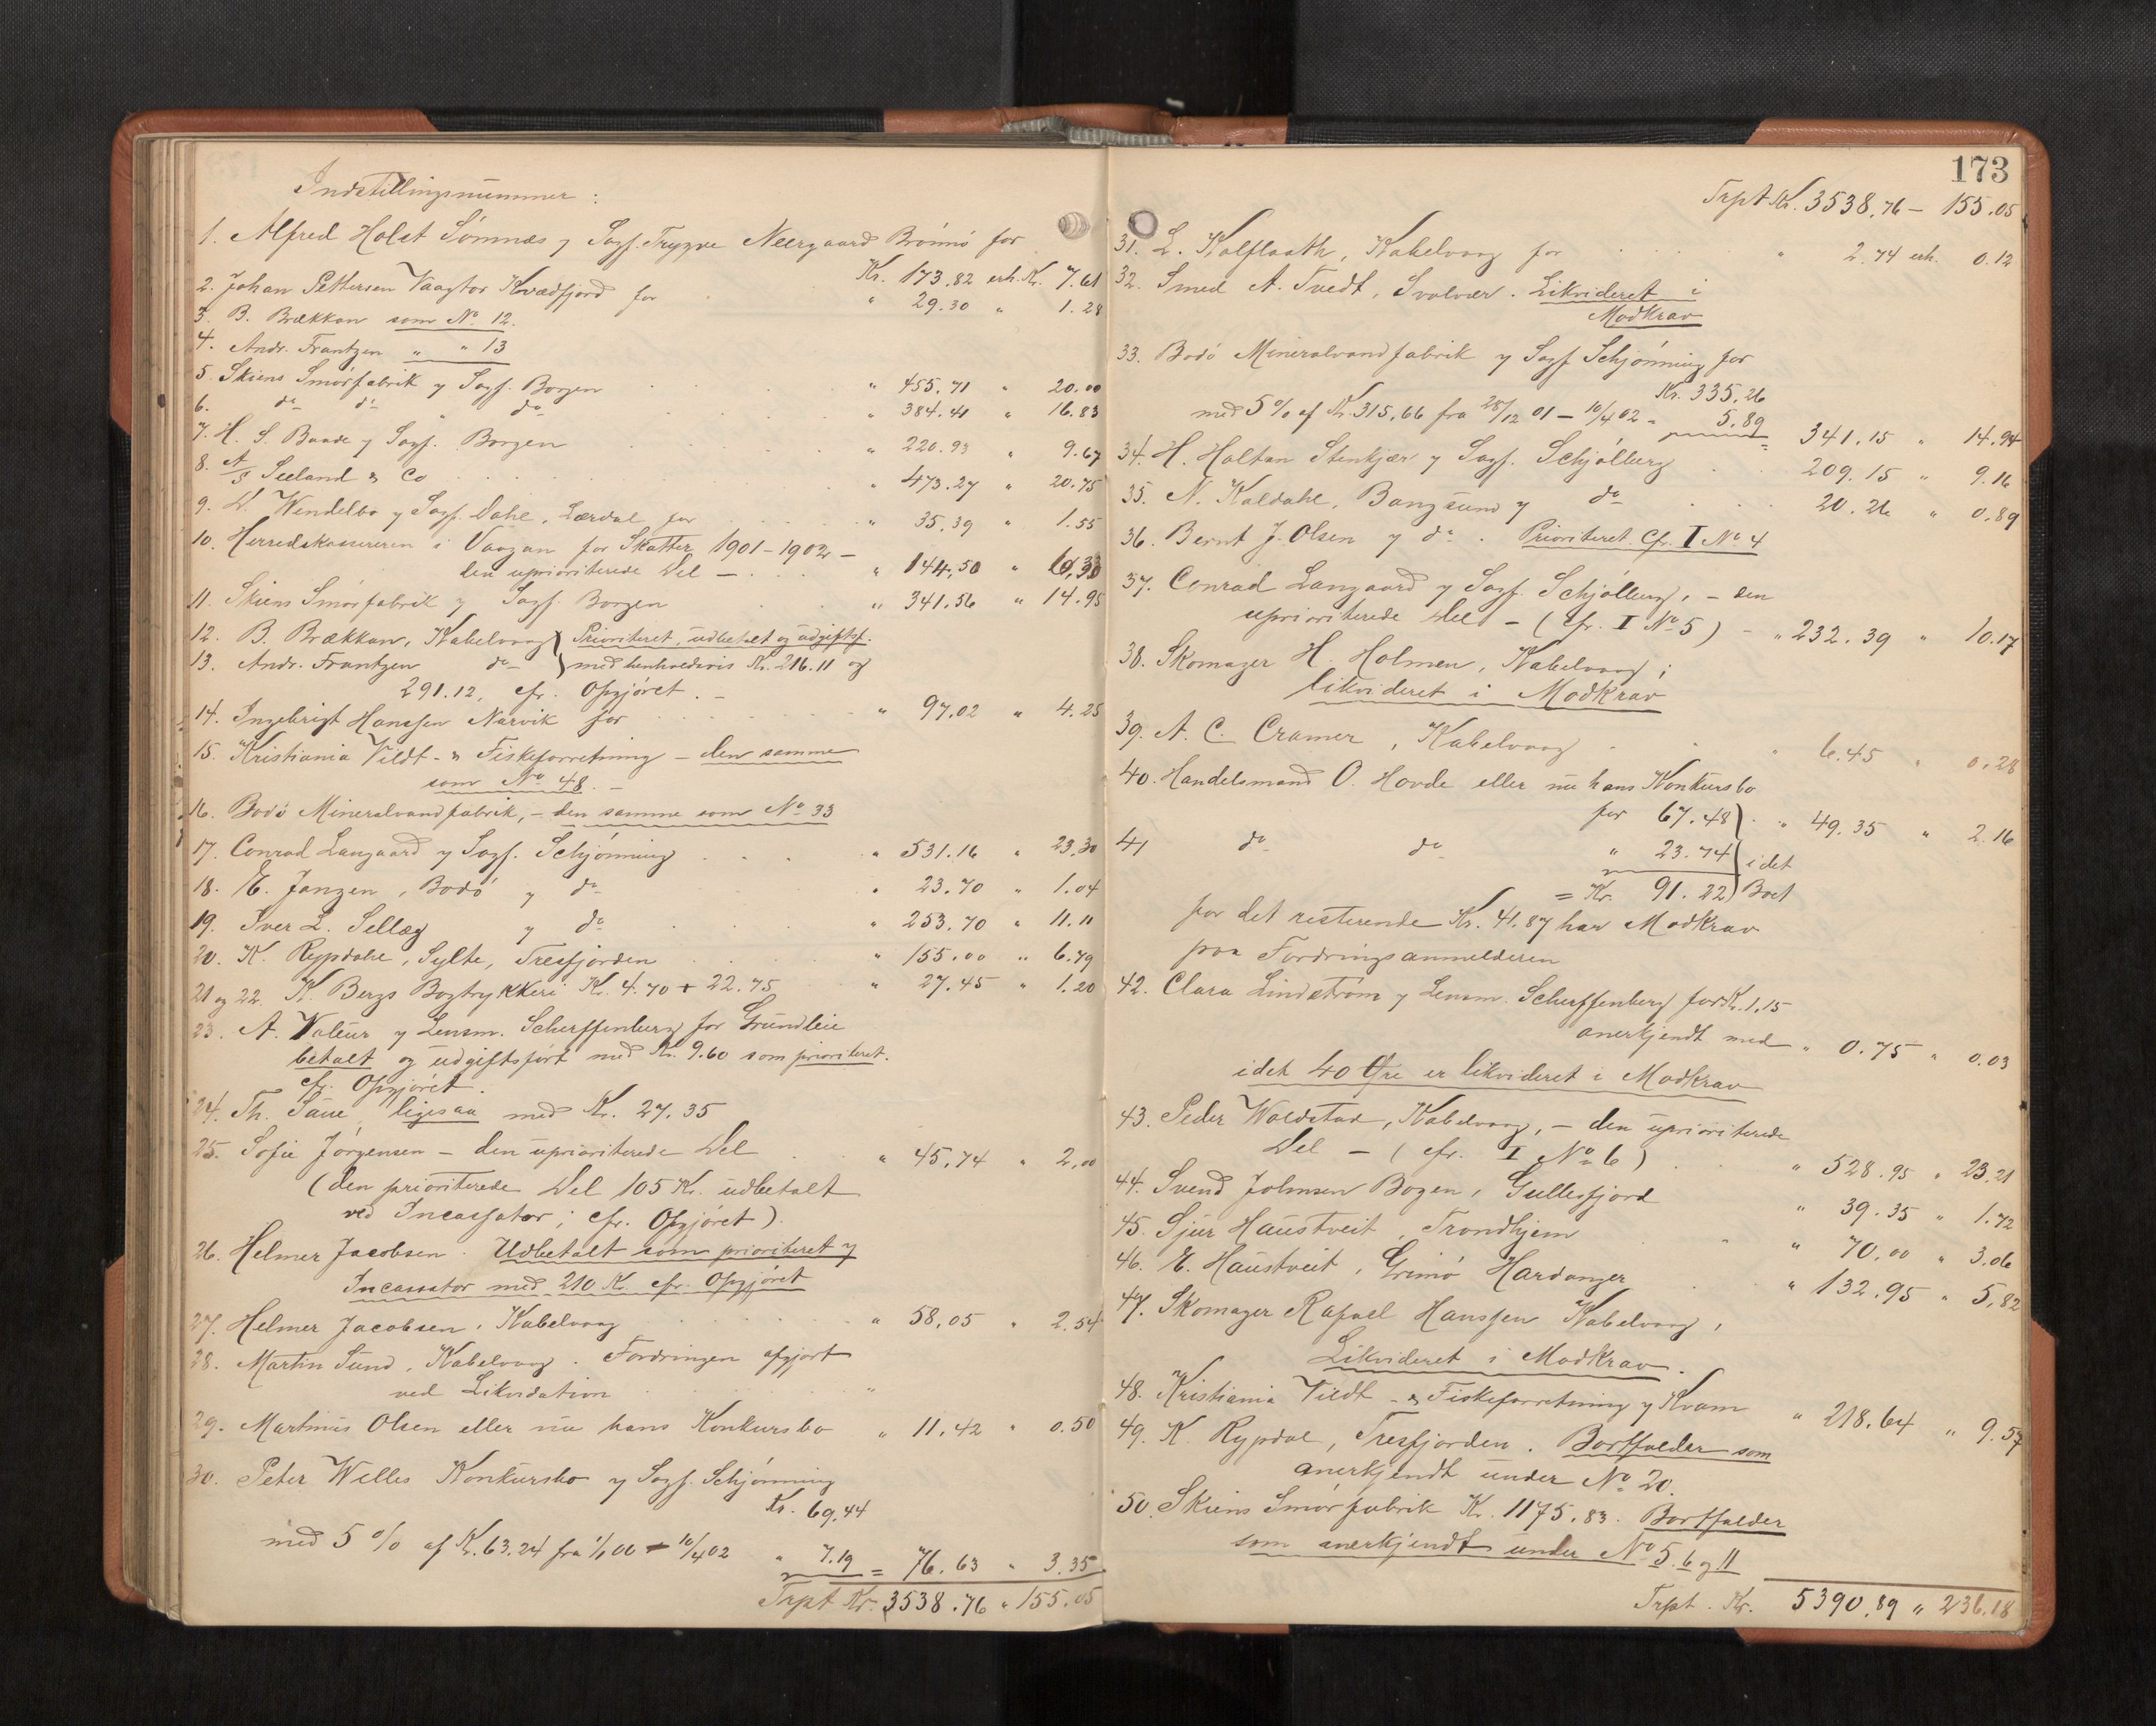 Indstillingsnummer:
1. Alfred Holst Sömnæs v Sagf. Trygve Neergaard Brönnö for
Kr. 173.82 erh. Kr. 7.61
2. Johan Pettersen Vaagtor Kvædfjord for " 29.30 " 1.28
3. B. Brækkan som No 12.
4. Andr. Frantzen " " 13
5. Skiens Smörfabrik v Sagf. Borgen " 455.71 " 20.00
6. do do " do " 384.41 " 16.83
7. H. S. Baade v Sagf. Borgen " 220.93 " 9.67
8. A/S Seeland & Co " 473.27 " 20.75
9. W. Wendelbo v Sagf. Dahl, Lærdal for " 35.39 " 1.55
10. Herredskassereren i Vaagan for Skatter 1901-1902 -
den uprioriterede Del - " 144.50 " 6.33
11. Skiens Smörfabrik v Sagf. Borgen " 341.56 " 14.95
12. B. Brækkan, Kabelvaag } Prioriteret, udbetalt og udgiftsf.
13. Andr. Frantzen do } med henholdsvis Kr. 216.11 og
291.12, cfr. Opgjöret. -
14. Ingebrigt Hanssen Narvik for " 97.02 " 4.25
15. Kristiania Vildt- & Fiskeforretning - den samme
som No 48. -
16. Bodö Mineralvandfabrik, - den samme som No 33
17. Conrad Langaard v Sagf. Schjönning " 531.16 " 23.30
18. E. Janzen, Bodö v do " 23.70 " 1.04
19. Iver L. Sellæg v do " 253.70 " 11.11
20. K. Rypdahl, Sylte, Tresfjorden " 155.00 " 6.79
21 og 22. K. Bergs Bogtrykkeri Kr. 4.70 + 22.75 " 27.45 " 1.20
23. A. Valeur v Lensm. Scherffenberg for Grundleie
betalt og udgiftsfört med Kr. 9.60 som prioriteret.
cfr. Opgjöret.
24. Th. Saue ligesaa med Kr. 27.35
25. Sofie Jörgensen - den uprioriterede Del " 45.74 " 2.00
(den prioriterede Del 105 Kr. udbetalt
ved Incassator; cfr. Opgjöret)
26. Helmer Jacobsen. Udbetalt som prioriteret v
Incassator med 210 Kr. cfr. Opgjöret
27. Helmer Jacobsen, Kabelvaag " 58.05 " 2.54
28. Martin Sund, Kabelvaag. Fordringen afgjort
ved Likvidation "
29. Martinus Olsen eller nu hans Konkursbo " 11.42 " 0.50
30. Peter Willes Konkursbo v Sagf. Schjönning
Kr. 69.44
med 5 % af Kr. 63.24 fra 1/1 00 - 10/4 02 " 7.19 = 76.63 " 3.35
Trpt Kr. 3538.76 " 155.05
173
Trpt Kr. 3538.76 - 155.05
31. L. Kalflaath, Kabelvaag for " 2.74 erh. 0.12
32. Smed A. Tvedt, Svolvær. Likvideret i
Modkrav
33. Bodö Mineralvandfabrik v Sagf. Schjönning for
Kr. 335.26
med 5 % af Kr. 315.66 fra 28/12 01 - 10/4 02 " 5.89 = 341.15 " 14.94
34. H. Holtan Stenkjær v Sagf. Schjölberg 209.15 " 9.16
35. N. Kaldahl, Bangsund v do 20.26 " 0.89
36. Bernt J. Olsen v do. Prioriteret. Cfr. I No 4
37. Conrad Langaard v Sagf. Schjölberg, - den
uprioriterede Del - (cfr. I No 5) - " 232.39 " 10.17
38. Skomager H. Holmen, Kabelvaag;
likvideret i Modkrav
39. A. C. Cramer, Kabelvaag " 6.45 " 0.28
40. Handelsmand O. Hovde eller nu hans Konkursbo
for 67.48 } " 49.35 " 2.16
41 do do " 23.74 } idet
= Kr. 91.22 } Boet
for det resterende Kr. 41.87 har Modkrav
paa Fordringsanmelderen
42. Clara Lindström v Lensm. Scherffenberg for Kr. 1.15
anerkjendt med " 0.75 " 0.03
idet 40 Öre er likvideret i Modkrav
43. Peder Woldstad, Kabelvaag, - den uprioriterede
Del - (cfr. I No 6) " 528.95 " 23.21
44. Svend Johnsen Bogen, Gullesfjord " 39.35 " 1.72
45. Sjur Haustveit, Trondhjem " 70.00 " 3.06
46. E. Haustveit, Grimö Hardanger " 132.95 " 5.82
47. Skomager Rafael Hanssen Kabelvaag,
Likvideret i Modkrav.
48. Kristiania Vildt- & Fiskeforretning v Kvam " 218.64 " 9.57
49. K. Rypdal, Tresfjorden. Bortfalder som
anerkjendt under No 20.
50. Skiens Smörfabrik Kr. 1175.83. Bortfalder
som anerkjendt under No 5, 6 og 11
Trpt. Kr. 5390.89 " 236.18